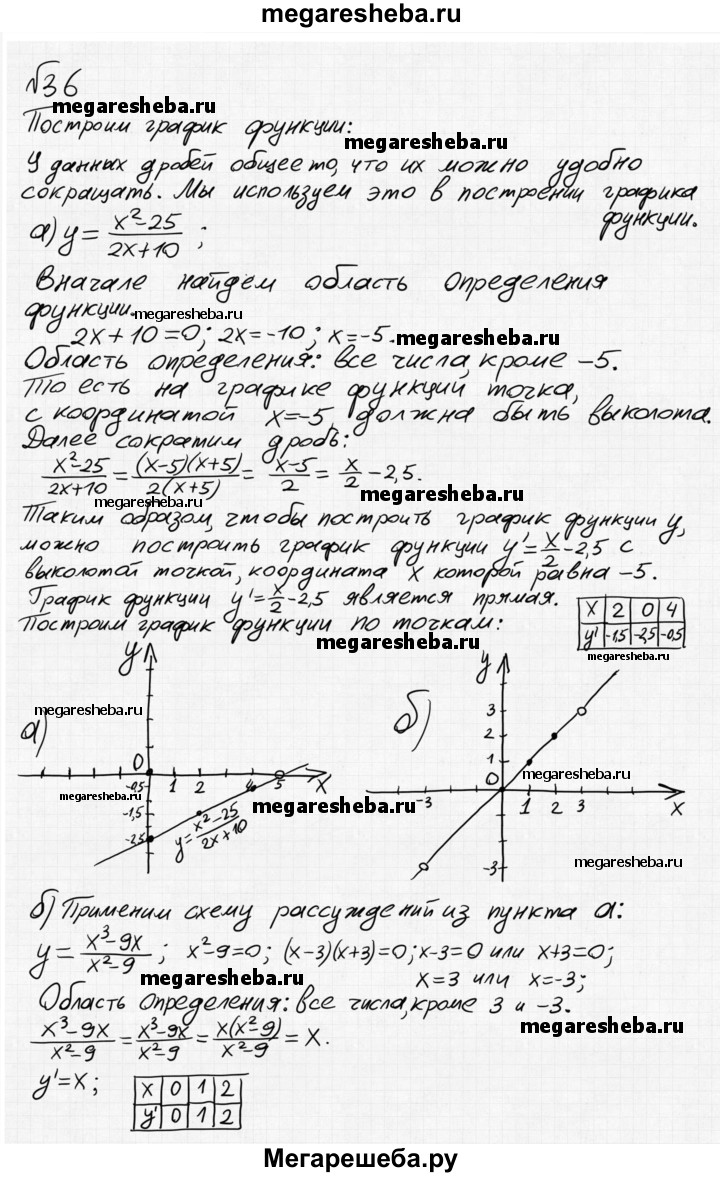 megaresheba.ru
№36
megaresheba.ru
Построим график функции:
megaresheba.ru
У данных дробей общее то, что их можно удобно
сокращать. Мы используем это в построении графика
функции.
а) y = (x²-25)/(2x+10) ;
Вначале найдем область определения
функции.
megaresheba.ru
2x+10=0; 2x=-10; x=-5.
megaresheba.ru
Область определения: все числа, кроме -5.
То есть на графике функций точка,
с координатой x=-5, должна быть выколота.
Далее сократим дробь:
(x²-25)/(2x+10) = (x-5)(x+5)/2(x+5) = (x-5)/2 = x/2 - 2,5.
megaresheba.ru
megaresheba.ru
Таким образом, чтобы построить график функции y,
можно построить график функции y'=x/2-2,5 с
выколотой точкой, координата x которой равна -5.
График функции y'=x/2-2,5 является прямая.
Построим график функции по точкам:
x 2 0 4
y' -1,5 -2,5 -0,5
megaresheba.ru
megaresheba.ru
а)
y
megaresheba.ru
0
1 2 4 5 x
-0,5
-1,5
-2,5
megaresheba.ru
megaresheba.ru
y=(x²-25)/(2x+10)
б)
y
3
2
1
0
megaresheba.ru
-3 1 2 3 x
-3
megaresheba.ru
б) Применим схему рассуждений из пункта а:
y = (x³-9x)/(x²-9) ; x²-9=0; (x-3)(x+3)=0; x-3=0 или x+3=0;
megaresheba.ru
x=3 или x=-3;
Область определения: все числа, кроме 3 и -3.
megaresheba.ru
(x³-9x)/(x²-9) = (x³-9x)/(x²-9) = x(x²-9)/(x²-9) = x.
y'=x;
x 0 1 2
y' 0 1 2
Мегарешеба.ру